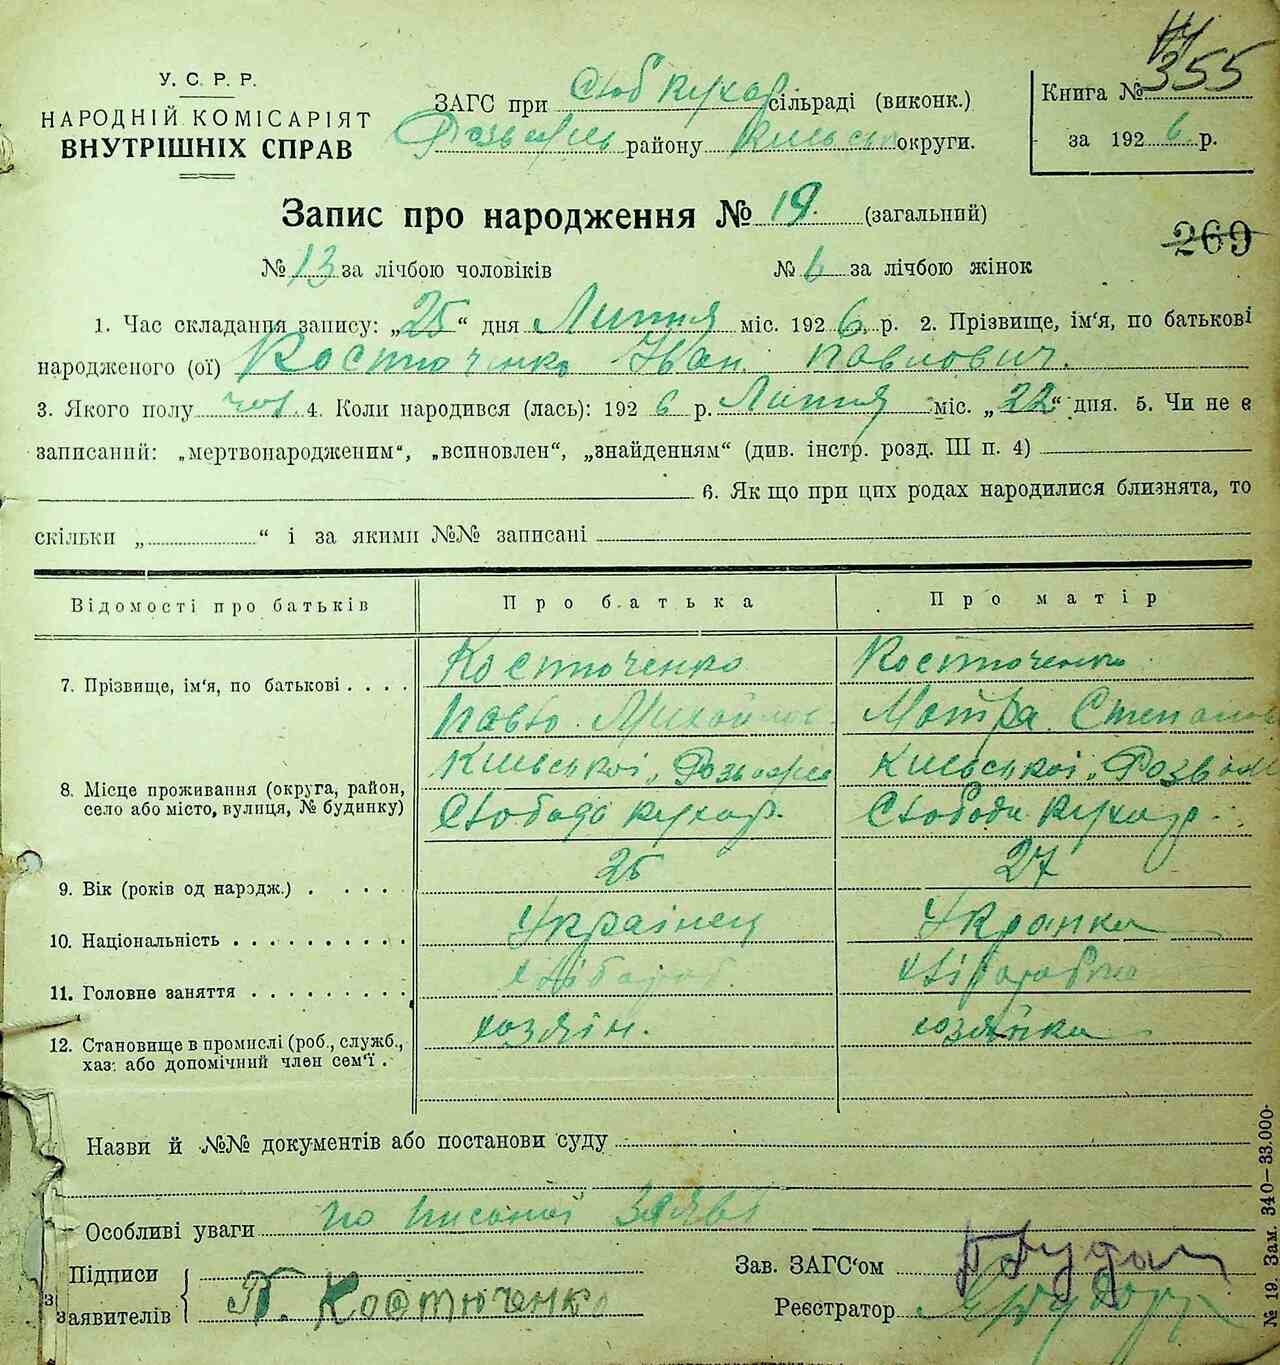 У. С. Р. Р.
НАРОДНІЙ КОМІСАРІЯТ
ВНУТРІШНІХ СПРАВ
ЗАГС при Слоб Кухар сільраді (виконк.)
району округи.
Книга № 355
за 1926 р.
Запис про народження № 19. (загальний)
269
№ 13 за лічбою чоловіків № 6 за лічбою жінок
1. Час складання запису: „25“ дня Липня міс. 1926 р. 2. Прізвище, ім'я, по батькові
народженого (ої) Костюченко Іван Павлович.
3. Якого полу чол. 4. Коли народився (лась): 1926 р. Липня міс. „22“ дня. 5. Чи не є
записаний: „мертвонародженим“, „всиновлен“, „знайденням“ (див. інстр. розд. III п. 4)
6. Як що при цих родах народилися близнята, то
скільки „ “ і за якими №№ записані
Відомості про батьків Про батька Про матір
7. Прізвище, ім'я, по батькові . . . . Костюченко Костюченко
Павло Михайлов Мотря Степанов
8. Місце проживання (округа, район, село або місто, вулиця, № будинку) Київської, Розваж Київської, Розваж
Слобода Кухар. Слобода Кухар.
9. Вік (років од народж.) . . . . 26 27
10. Національність . . . . . . . . . . Українец Украінка
11. Головне заняття . . . . . . . . . хлібороб. хліборобка
12. Становище в промислі (роб., служб., хаз. або допомічний член сем'ї . хозяін. хозяйка
Назви й №№ документів або постанови суду
Особливі уваги по писаної заяві
Підписи
заявителів П. Костюченко
Зав. ЗАГС'ом
Реєстратор
№ 19. Зам. 340—33.000.